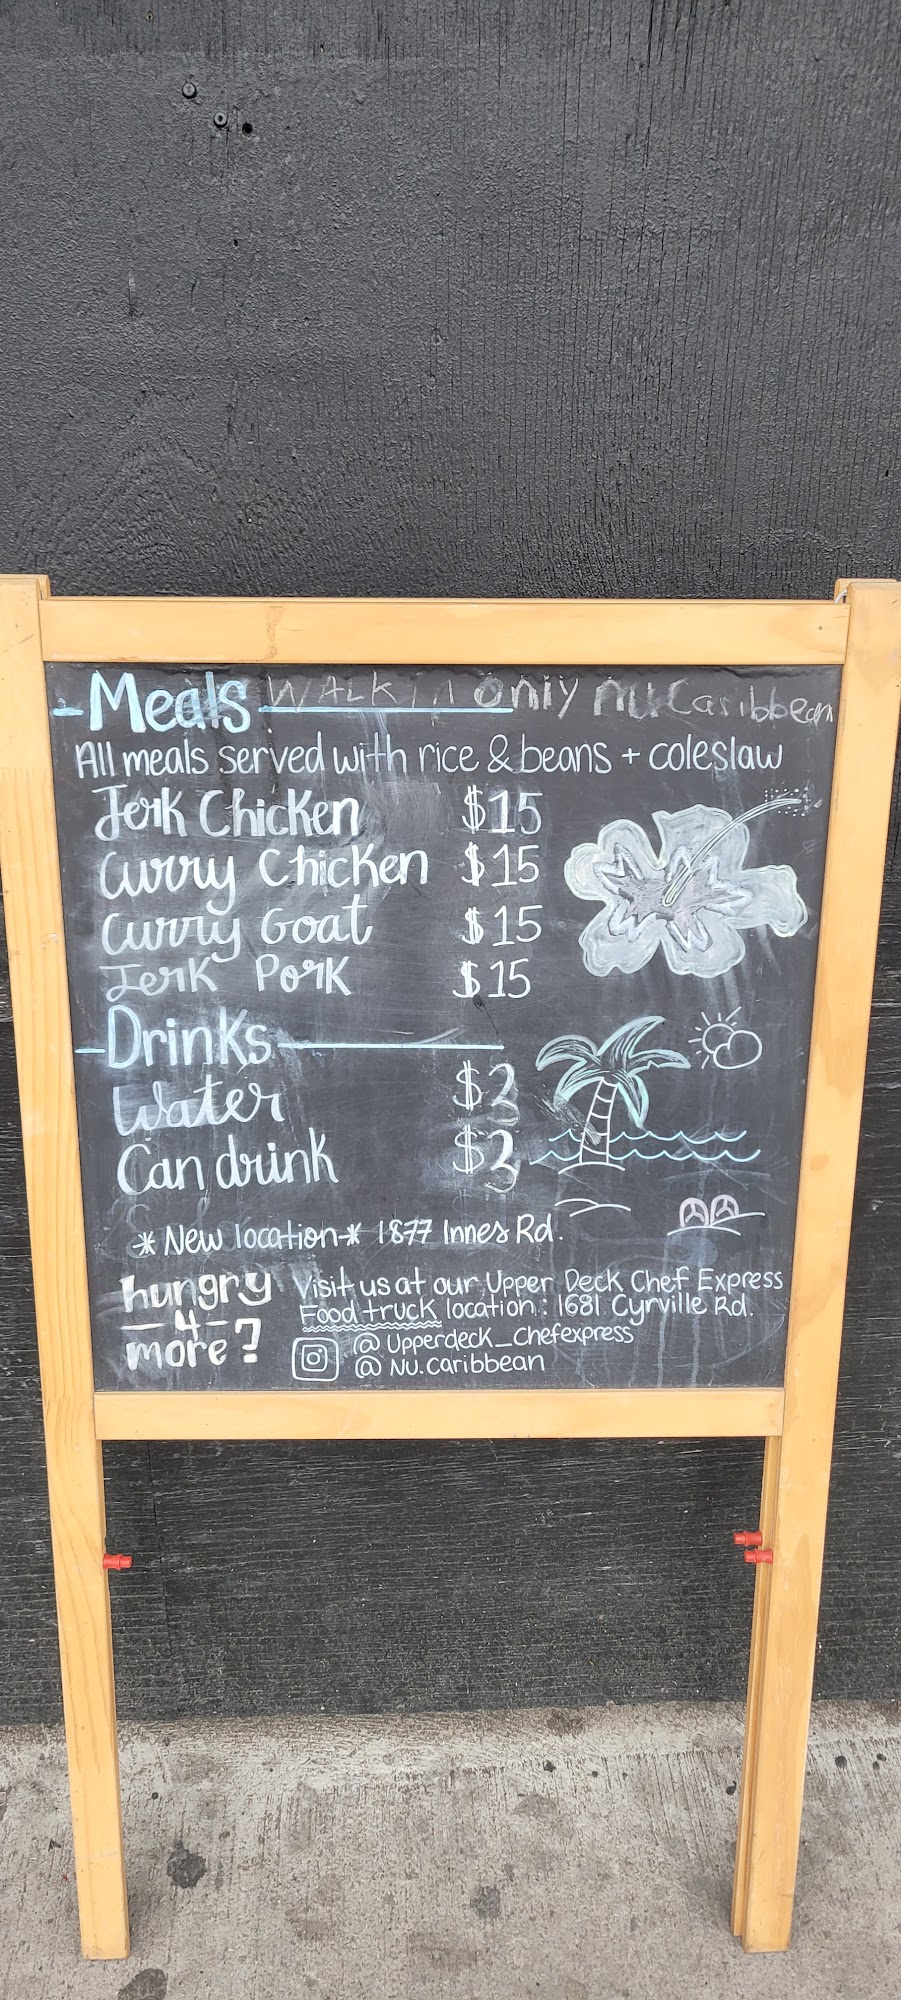 Meals WALK in only nu Caribbean
All meals served with rice & beans + coleslaw
Jerk Chicken $15
Curry Chicken $15
Curry Goat $15
Jerk Pork $15
Drinks
Water $2
Can drink $2
* New location * 1877 Innes Rd.
hungry
-4-
more?
Visit us at our Upper Deck Chef Express
Food truck location: 1681 Cyrville Rd.
@ Upperdeck_chefexpress
@ NU.caribbean